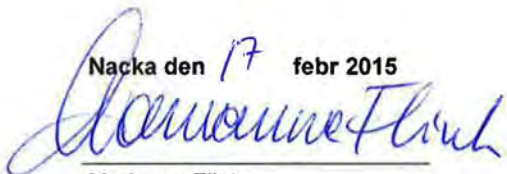 Nacka den 17 febr 2015
Marianne Flink